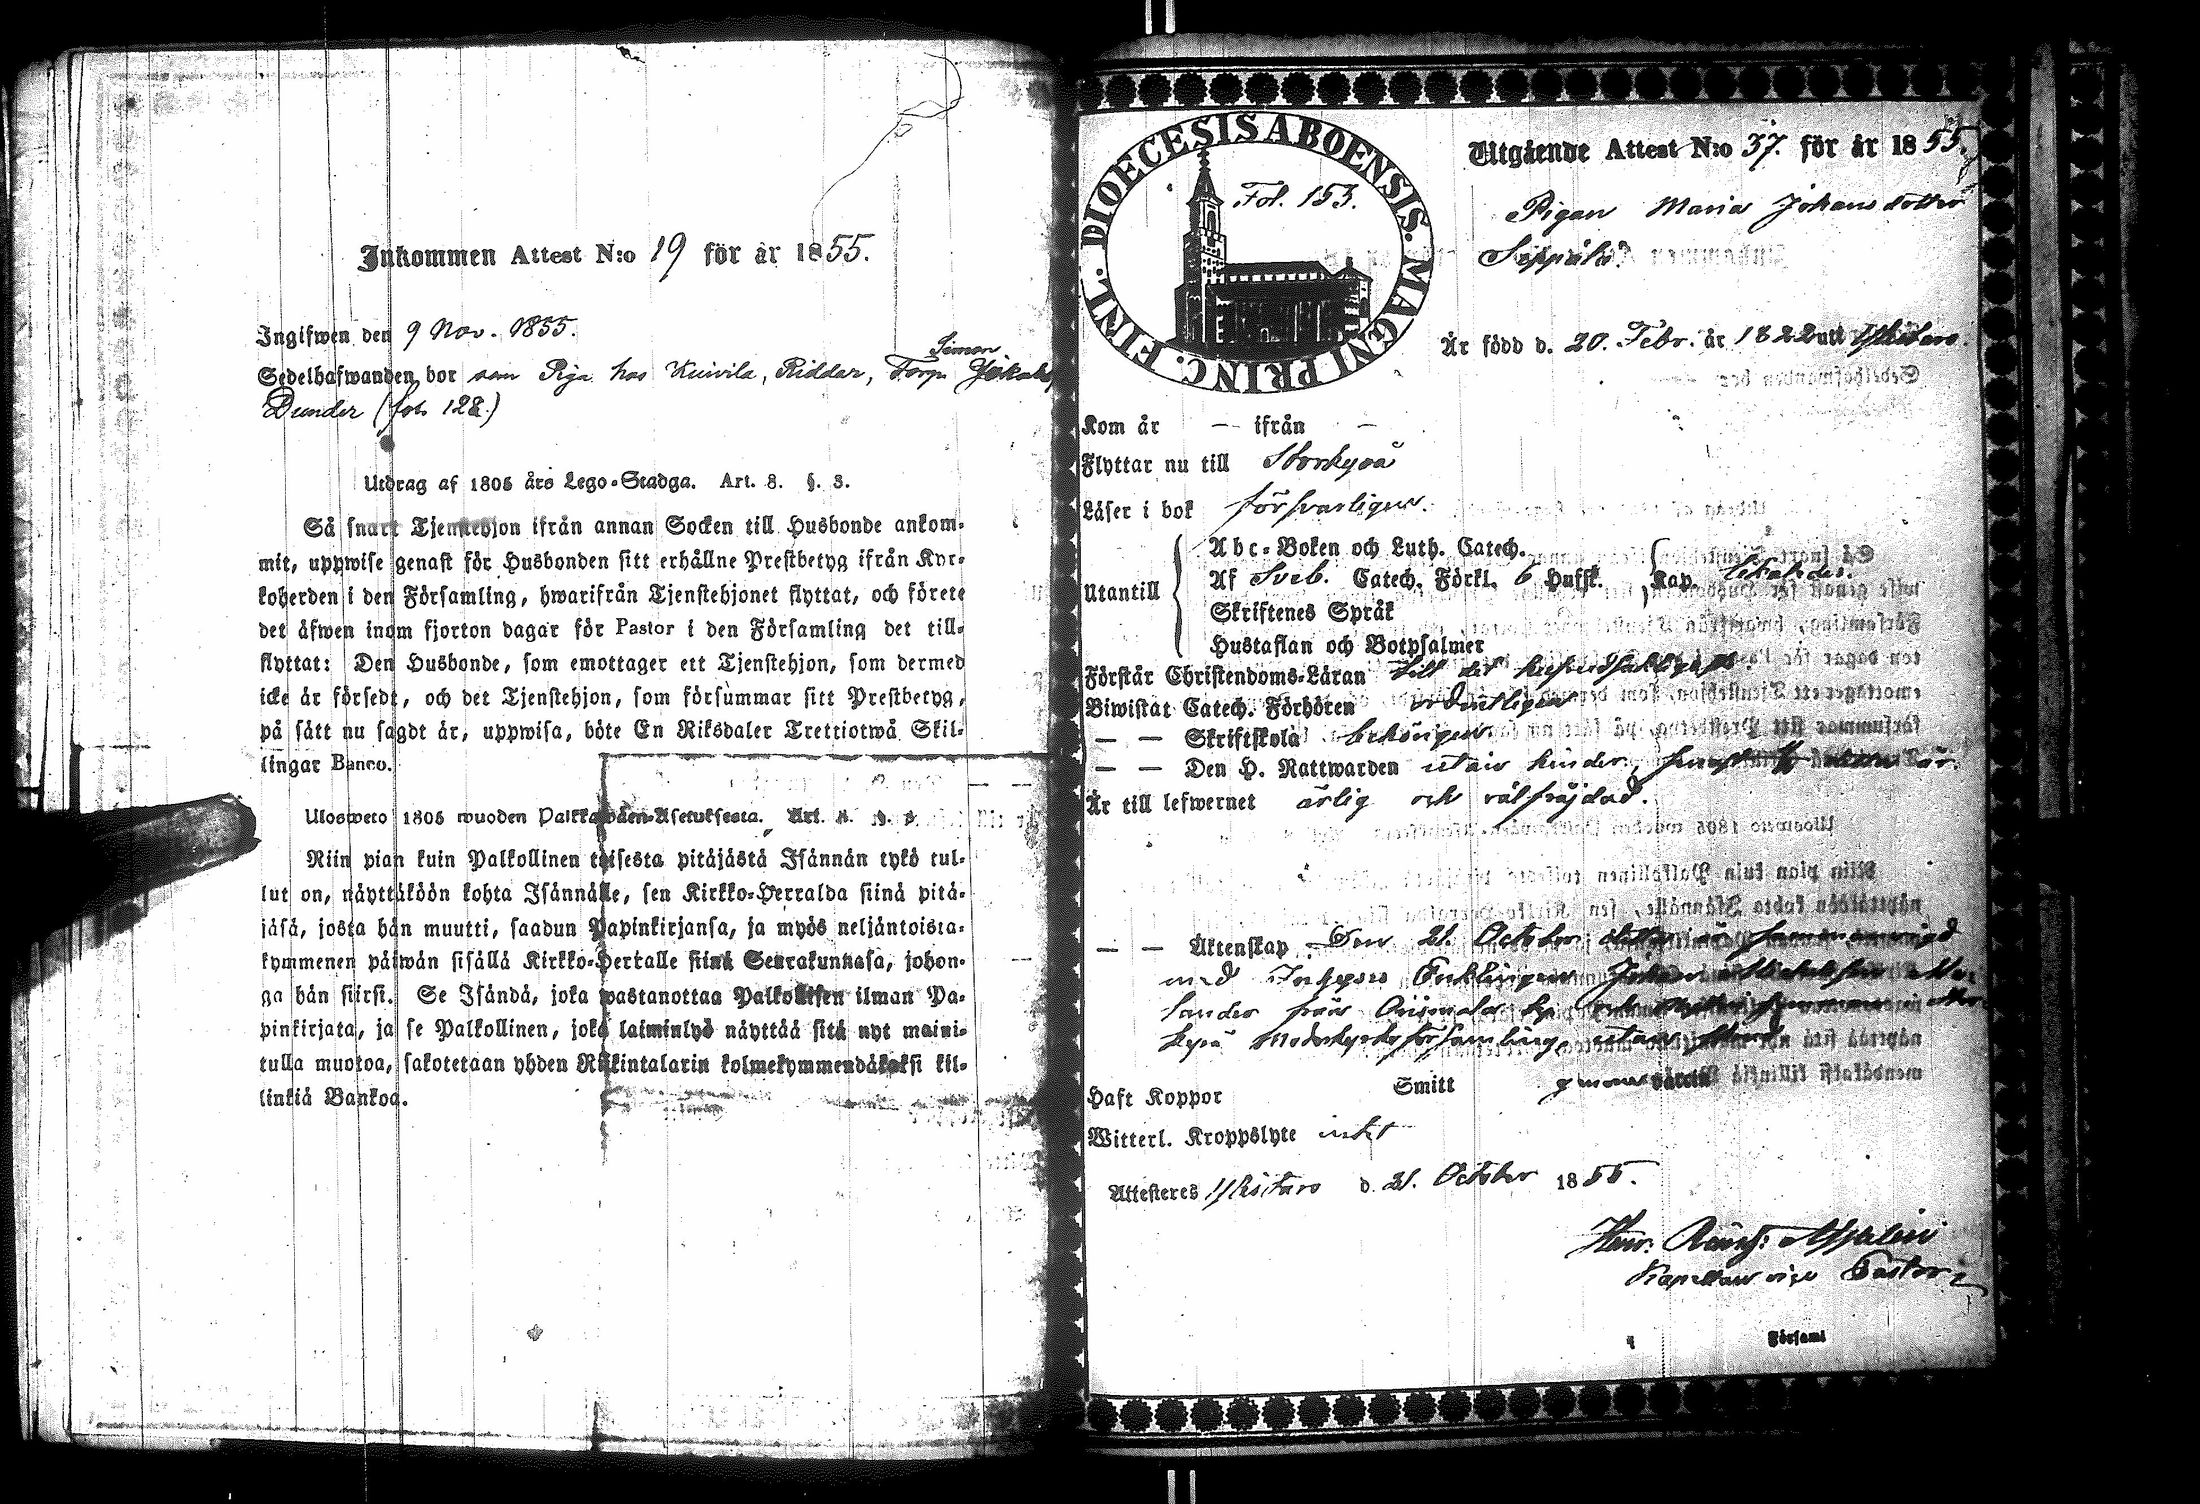 Inkommen Attest N:o 19 för år 1855.
Ingifwen den 9 Nov. 1855.
Simon
Sedelhafwanden bor som Piga hos Kuivila, Riddar, Torp.
Dunder (fol. 128.)
Utdrag af 1805 års Lego-Stadga. Art. 8. §. 3.
Så snart Tjenstehjon ifrån annan Socken till Husbonde ankom-
mit, uppwise genast för Husbonden sitt erhållne Prestbetyg ifrån Kyr-
koherden i den Församling, hwarifrån Tjenstehjonet flyttat, och förete
det äfwen inom fjorton dagar för Pastor i den Församling det till-
flyttat: Den Husbonde, som emottager ett Tjenstehjon, som dermed
icke är försedt, och det Tjenstehjon, som försummar sitt Prestbetyg,
på sätt nu sagdt är, uppwisa, böte En Riksdaler Trettiotwå Skil-
lingar Banco.
Ulosweto 1805 wuoden Palkkawäen-Asetuksesta. Art. 8. §. 3.
Niin pian kuin Palkollinen toisesta pitäjästä Isännän tykö tul-
lut on, näyttäköön kohta Isännälle, sen Kirkko-Herralda siinä pitä-
jäsä, josta hän muutti, saadun Papinkirjansa, ja myös neljäntoista-
kymmenen päiwän sisällä Kirkko-Herralle siinä Seurakunnasa, johon-
ga hän siirsi. Se Isändä, joka wastanottaa Palkollisen ilman Pa-
pinkirjata, ja se Palkollinen, joka laiminlyö näyttää sitä nyt maini-
tulla muotoa, sakotetaan yhden Riikintalarin kolmekymmendäkaksi kil-
linkiä Bankoa.
DIOECESIS ABOENSIS. MAGNI PRINC. FINL.
Fol. 153.
Utgående Attest N:o 37. för år 1855.
Pigan Maria Johansdotter
Seppälä.
Är född d. 20. Febr. år 1822 uti Ylistaro.
Kom år — ifrån —
Flyttar nu till Storkyrö
Läser i bok försvarligen.
Abc-Boken och Luth. Catech.
Utantill Af Sveb. Catech. Förkl. 6 Hufst. Kap.
Skriftenes Språk
Hustaflan och Botpsalmer
Förstår Christendoms-Läran till det
Biwistat Catech. Förhören ordentligen
— — Skriftskola behörigen
— — Den H. Nattwarden utan hinder,
Är till lefwernet ärlig och välfrejdad.
— — Äktenskap Den 21. October
med Inhyses Enklingen Johan
sander från
kyrö Moderkyrko församling, utan
Haft Koppor Smitt genom
Witterl. Kroppslyte intet
Attesteras Ylistaro d. 21. October 1855.
Henr:
Kapellan vice Pastor
Församl